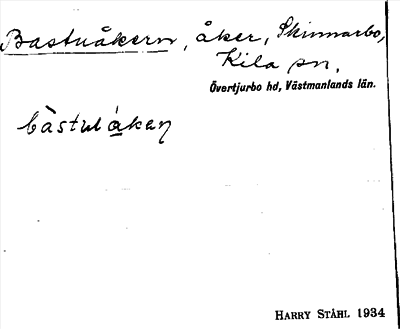 Bastuåkern, åker, Skinnarbo,
Kila sn.
Övertjurbo hd, Västmanlands län.
bàstuåkaṇ
HARRY STÅHL 1934